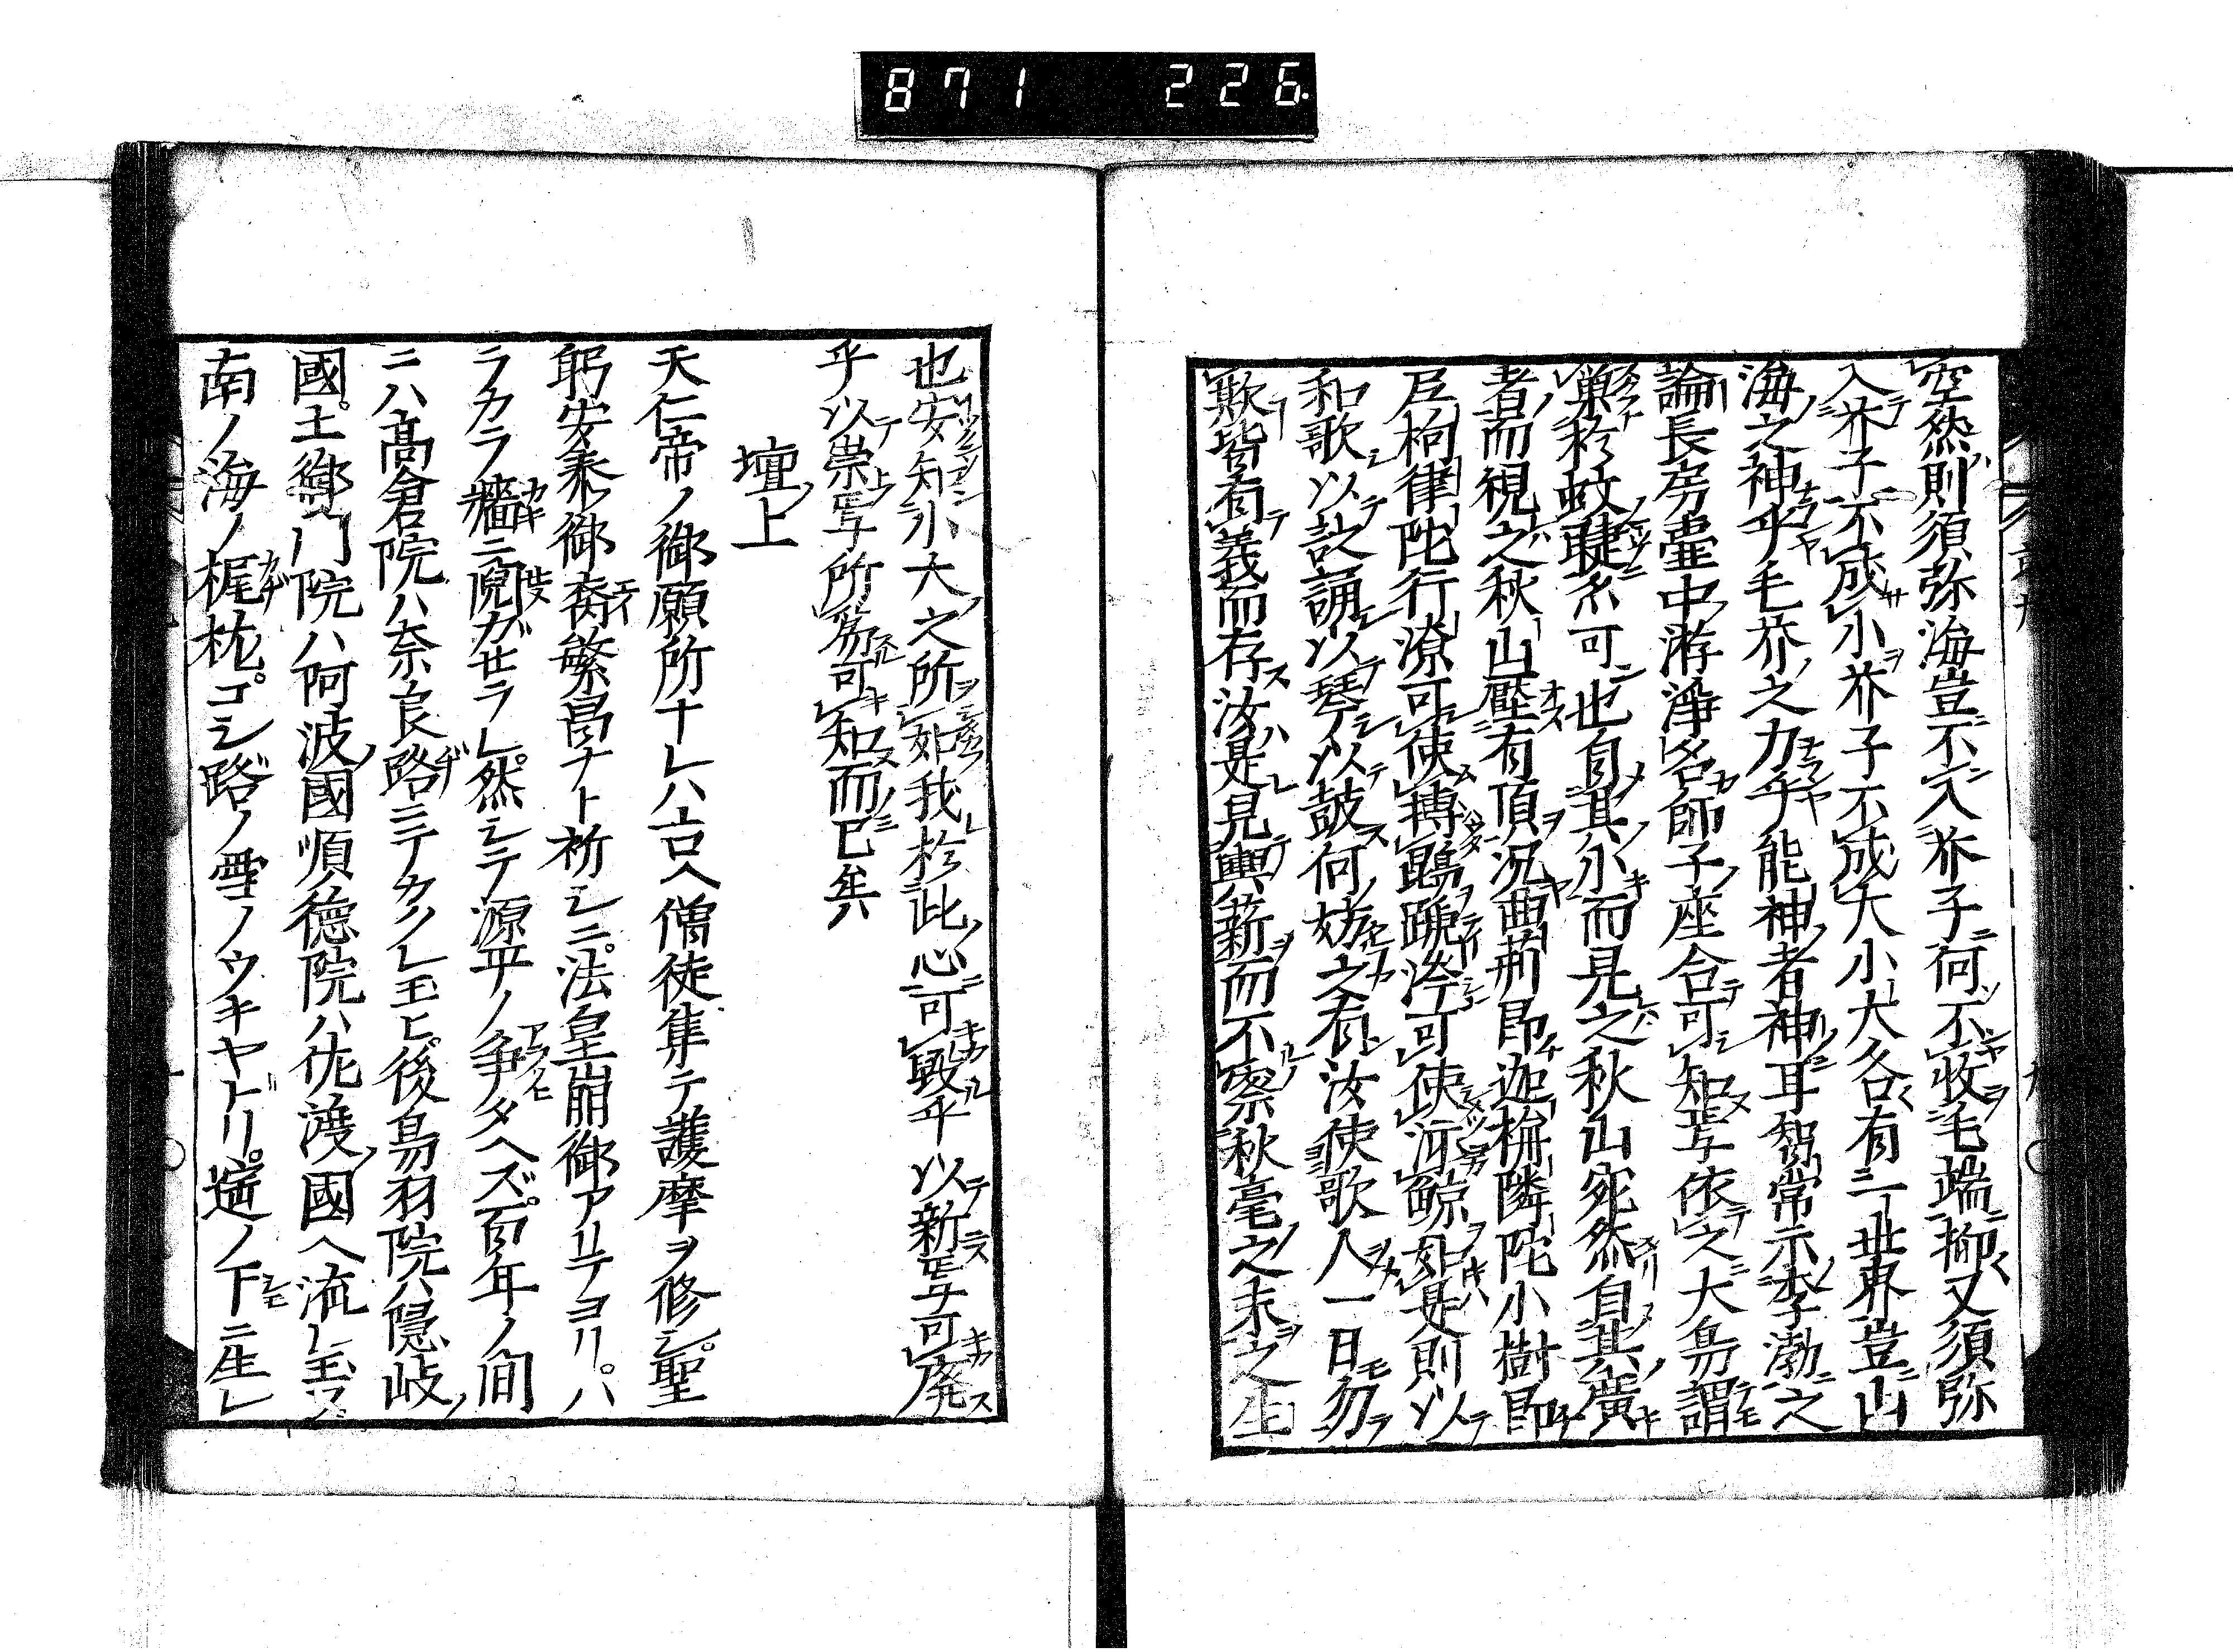 871 226
空然則須弥海豈不入芥子何不收毛端抑又須弥
入芥子不成小芥子不成大小大各有二世界豈山
海之神乎毛芥之力乎能神者神耳智常示李渤之
論長房壷中游浄名師子座合可知与依之大烏謂
巣於蚊睫不可也自其小而見之秋山宛然自其廣
者而視之秋山壓有頂况曲荊即迦栴隣陀小樹即
巨枸律陀行潦可使搏鵾蹏涔可使泝鯨如是則以
和歌以詠誦以琴以鼓何妨之有汝使歌人一日勿
欺皆有義而存汝是見輿薪而不察秋毫之末之生
也安知小大之所如我於此心可毀乎以新与可廃
乎以崇与所為可知而已矣
壇上
天仁帝ノ御願所ナレハ古ヘ僧徒集テ護摩ヲ修シ聖
躬安泰御裔繁昌ナト祈シニ法皇崩御アリテヨリハ
ラカラ牆ニ鬩ガセラレ然シテ源平ノ争タヘズ百年ノ間
ニハ髙倉院ハ奈良路ニテカクレ玉ヒ後鳥羽院ハ隠岐
國土御門院ハ阿波國順徳院ハ佐渡國ヘ流レ玉フ
南ノ海ノ梶枕コシ路ノ雪ノウキヤドリ遥ノ下ニ生レ